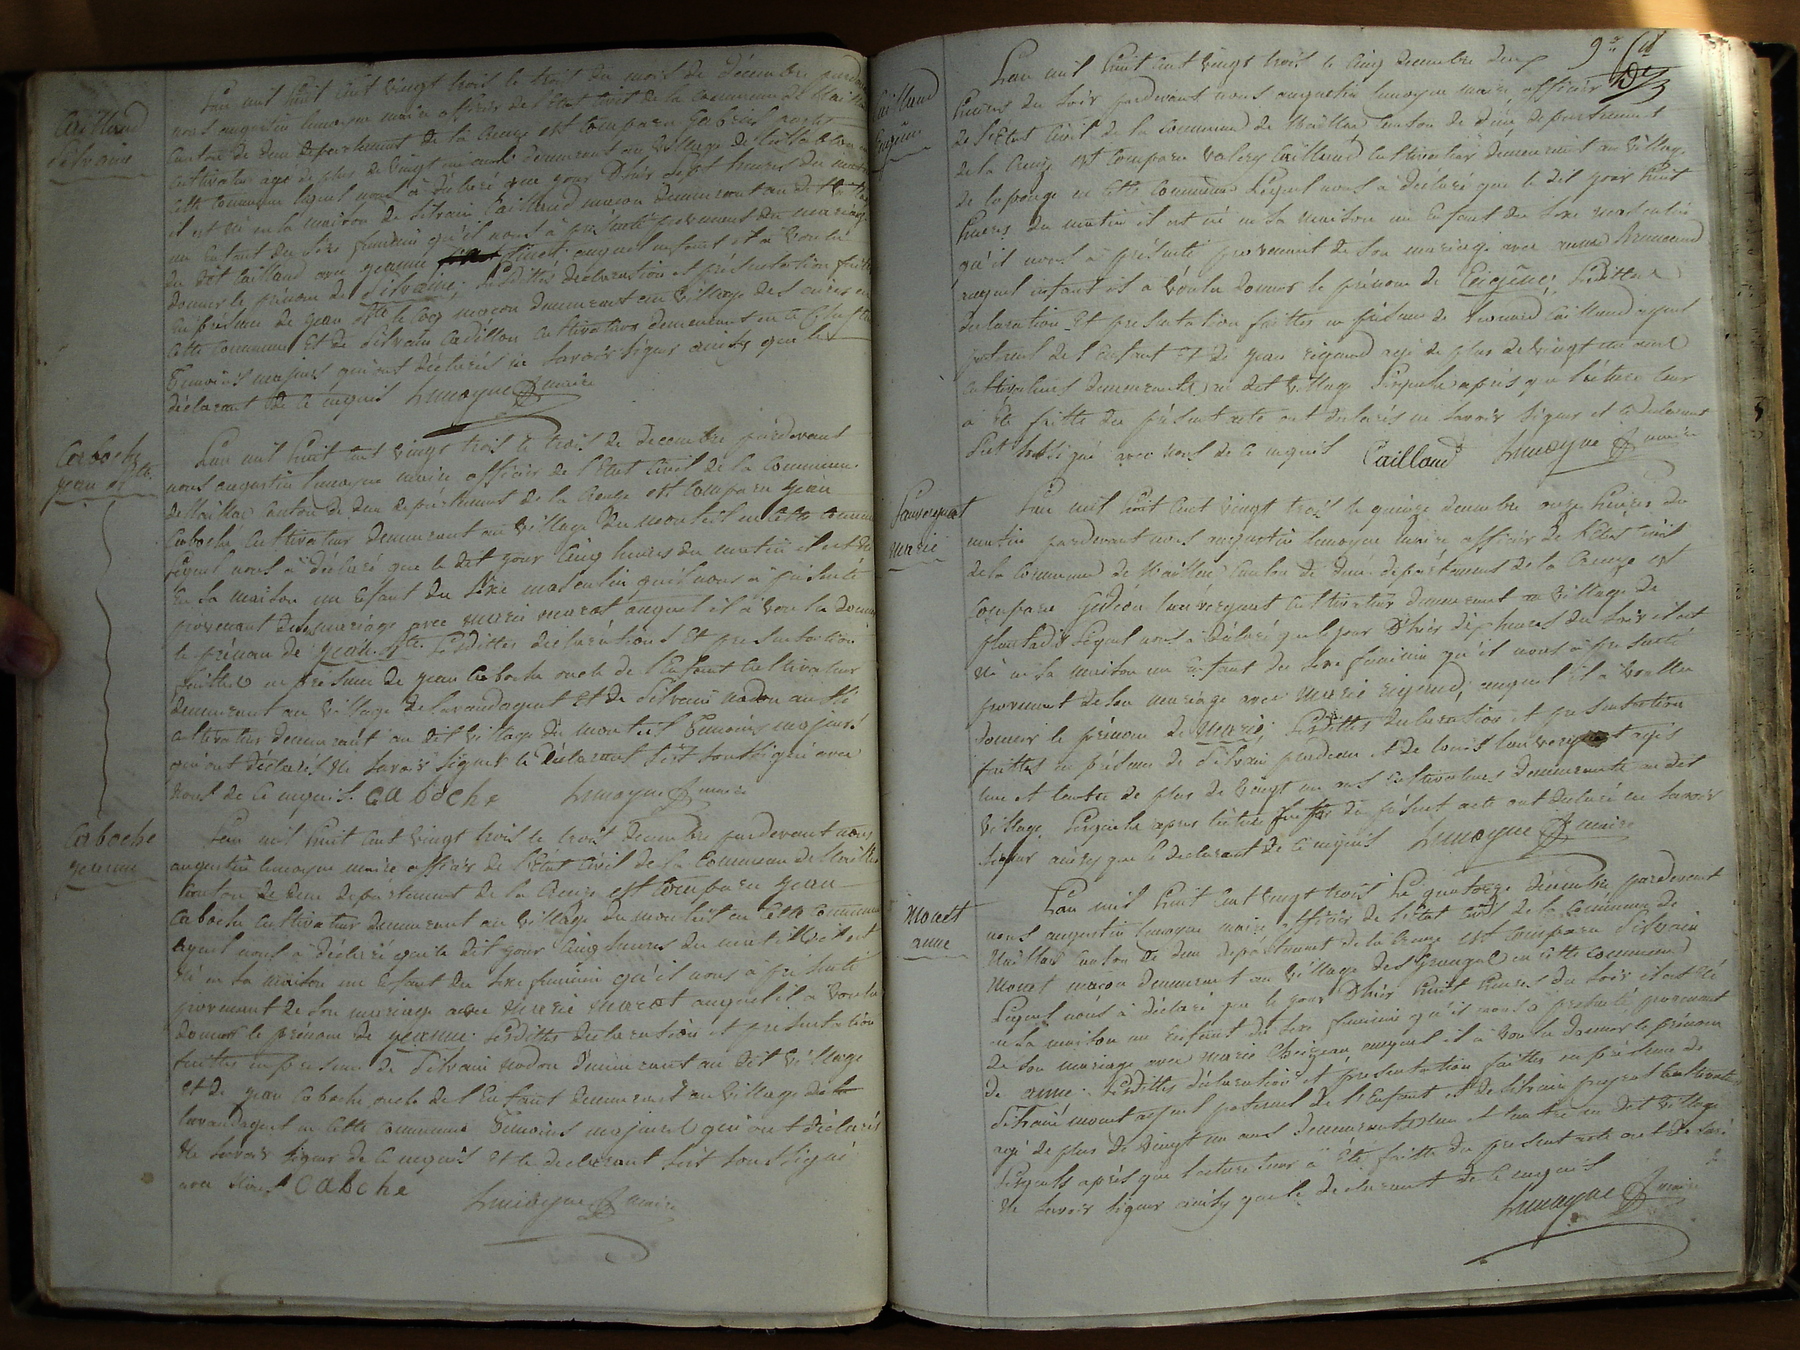 Cailland
Silvaine
L'an mil huit cent vingt trois le trois du mois de décembre pardevant
nous augustin lemoyne maire officier de l'Etat civil de la commune de Maillac
Canton de Dun département de la Creuse est comparu
cultivateur agé de plus de vingt un ans demeurant au village de
cette commune lequel nous a déclaré que jour D'hier sept heures du matin
il est né en la maison de Silvain Cailland maçon demeurant au dit village
un Enfant du sexe féminin qu'il nous a présenté provenant du mariage
du dit Cailland avec jeanne auquel enfant il a voulu
donner le prénom de Silvaine; Lesdittes déclaration et présentation faittes
en présence de jean maçon demeurant au village des
cette commune Et de Silvain cultivateur demeurant
témoins majeurs qui ont déclarés ne savoir signer ainsy que le
déclarant de ce enquis Lemoyne maire
Caboche
jean Bte
L'an mil huit cent vingt trois le trois de décembre pardevant
nous augustin lemoyne maire officier de l'Etat civil de la commune
de Maillac canton de Dun département de la Creuse est comparu jean
Caboche cultivateur demeurant au village Du monteil en cette commune
lequel nous a déclaré que le dit jour cinq heures du matin il est né
En sa maison un enfant du sexe masculin qu'il nous a présenté
provenant de son mariage avec marie marcot auquel il a voulu donner
le prénom de jean Bte Lesdittes déclarations Et présentation
faittes en présence de jean Caboche oncle de l'Enfant cultivateur
demeurant au village de lavaudagent et de Silvain nadon aussi
cultivateur demeurant au dit village du monteil témoins majeurs
qui ont déclarés ne savoir signer le Déclarant s'est soussigné avec
nous de ce enquis. caboche Lemoyne maire
Caboche
jeanne
L'an mil huit cent vingt trois le trois décembre pardevant nous
augustin lemoyne maire officier de l'Etat civil de la commune de Maillac
Canton de Dun département de la Creuse est comparu jean
Caboche cultivateur demeurant au village Du monteil en cette commune
lequel nous a déclaré que le dit jour cinq heures du matin il est
né en sa maison un Enfant du sexe féminin qu'il nous a présenté
provenant de son mariage avec marie marcot auquel il a voulu
donner le prénom de jeanne. Lesdittes déclaration et présentation
faittes en présence de Silvain nadon demeurant au dit village
et de jean Caboche oncle de l'Enfant demeurant au village de
lavaudagent en cette commune témoins majeurs qui ont déclarés
ne savoir signer de ce enquis et le déclarant s'est soussigné
avec nous caboche
Lemoyne maire
Cailland
Eugène
L'an mil huit cent vingt trois le cinq décembre deux
heures du soir pardevant nous augustin lemoyne maire officier
de l'Etat civil de la commune de Maillac canton de dun département
de la Creuse est comparu valery Cailland cultivateur demeurant au village
de lapouge en cette commune Lequel nous a déclaré que le dit jour huit
heures du matin il est né en sa maison un Enfant du sexe masculin
qu'il nous a présenté provenant de son mariage avec anne
auquel enfant il a voulu donner le prénom de Eugène; Lesdittes
déclaration Et présentation faittes en présence de Leonard Cailland ayeul
paternel de l'Enfant et de jean rigaud agé de plus de vingt un ans
cultivateurs demeurants au dit village lesquels après que lecture leur
a été faitte du présent acte ont déclarés ne savoir signer et le déclarant
s'est soussigné avec nous de ce enquis Cailland Lemoyne maire
Lauvergnat
marie
L'an mil huit cent vingt trois le quinze décembre onze heures du
matin pardevant nous augustin lemoyne maire officier de l'Etat civil
de la commune de Maillac canton de Dun département de la Creuse est
comparu lauvergnat cultivateur demeurant au village de
lequel nous a déclaré que le jour D'hier dix heures du soir il est
né en sa maison un Enfant du sexe féminin qu'il nous a présenté
provenant de son mariage avec marie rigaud, auquel il a voullu
donner le prénom de marie; Lesdittes déclaration et présentation
faittes en présence de Silvain et de louis lauvergnat agés
l'un et l'autre de plus de vingt un ans cultivateurs demeurants au dit
village, lesquels après lecture faitte du présent acte ont déclaré ne savoir
signer ainsy que le déclarant de ce enquis Lemoyne maire
Mouet
anne
L'an mil huit cent vingt trois le quatorze décembre pardevant
nous augustin lemoyne maire officier de l'Etat civil de la commune de
Maillac canton de Dun département de la Creuse est comparu Silvain
Mouet maçon demeurant au village des granges en cette commune
Lequel nous a déclaré que le jour D'hier huit heures du soir il est né
en sa maison un Enfant du sexe féminin qu'il nous a présenté provenant
de son mariage avec marie auquel il a voulu donner le prénom
de anne. Lesdittes déclaration et présentation faittes en présence de
Silvain mouet ayeul paternel de l'Enfant et de Silvain cultivateur
agé de plus de vingt un ans demeurants l'un et l'autre au dit village
lesquels après que lecture leur a été faitte du présent acte ont déclaré
ne savoir signer ainsy que le déclarant de ce enquis
Lemoyne maire